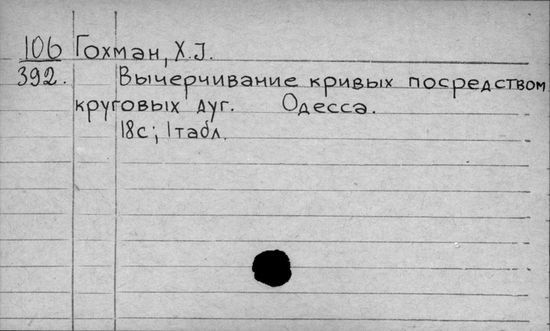 106 Гохман, Х.І.
392. Вычерчивание кривых посредством
круговых дуг. Одесса.
18с; 1табл.